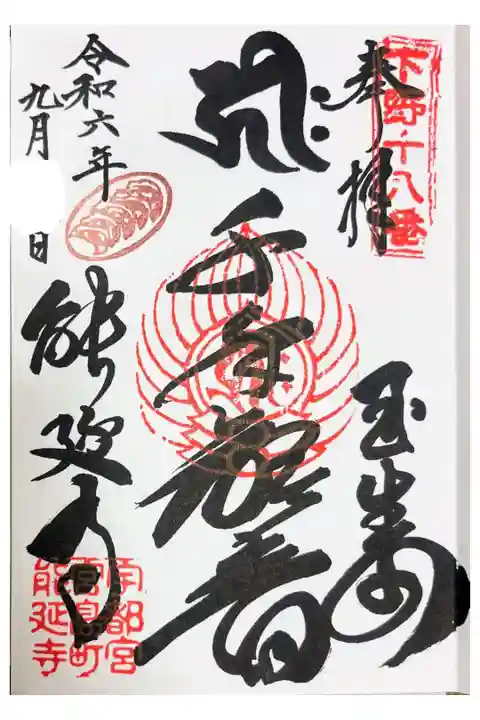 下野十八番
奉拝
玉生山
千手観音
令和六年
九月 日
能延寺
宇都宮
宮島町
能延寺